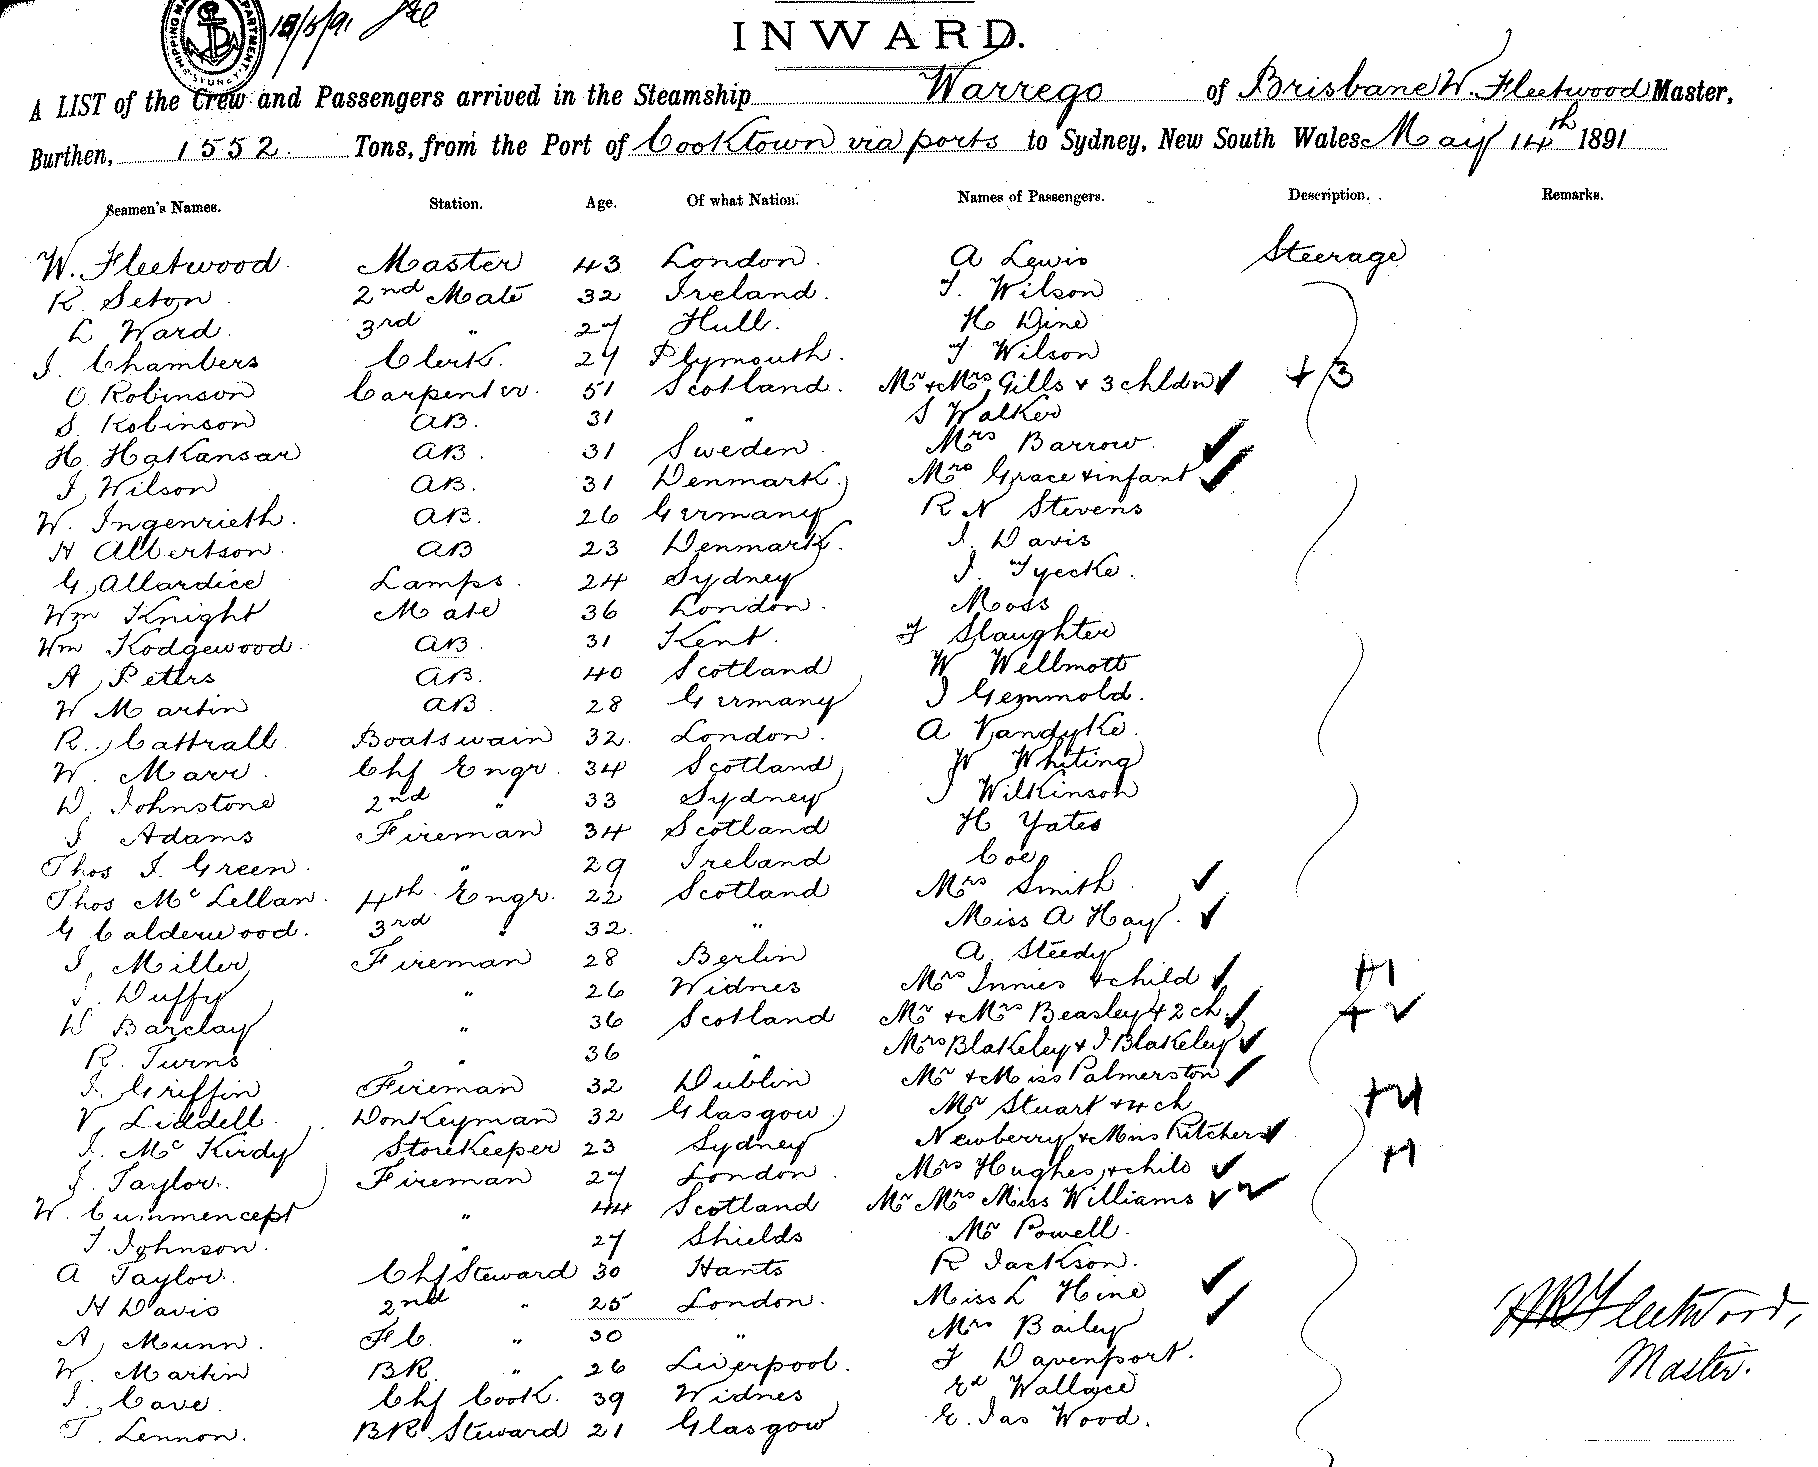 SHIPPING MA DEPARTMENT
18/5/91
INWARD.
A LIST of the Crew and Passengers arrived in the Steamship Warrego of Brisbane W. Fleetwood Master,
Burthen, 1552. Tons, from the Port of Cooktown via ports to Sydney, New South Wales May 14th 1891
Seamen's Names. Station. Age. Of what Nation. Names of Passengers. Description. Remarks.
W. Fleetwood Master 43 London. A Lewis Steerage
R. Seton 2nd Mate 32 Ireland. T. Wilson
L Ward. 3rd " 27 Hull. H Dine
J. Chambers Clerk. 27 Plymouth. T Wilson
O. Robinson Carpenter. 51 Scotland. Mr & Mrs Gills & 3 chldn + 3
S. Robinson AB. 31 " S Walker
H. Hakansar AB. 31 Sweden. Mrs Barrow.
J. Wilson AB. 31 Denmark. Mrs Grace & infant
W. Ingenrieth. AB. 26 Germany R N Stevens
H Albertson. AB 23 Denmark. J. Davis
G. Allardice Lamps. 24 Sydney J. Tyecke.
Wm Knight Mate 36 London. Moss
Wm Kodgewood. AB. 31 Kent. T Slaughter
A. Peters AB. 40 Scotland W Wellmott
W Martin AB. 28 Germany J Gemmold.
R. Cattrall Boatswain 32. London. A Vandyke.
W. Marr. Chf Engr. 34 Scotland W Whiting
D. Johnstone 2nd " 33 Sydney J Wilkinson
J Adams Fireman 34 Scotland H Yates
Thos J. Green. " 29 Ireland Coe
Thos McLellan. 4th Engr. 22 Scotland Mrs Smith.
G Calderwood. 3rd " 32. " Miss A Hay.
J. Miller Fireman 28 Berlin A. Steedy
J. Duffy " 26 Widnes Mrs Innies & child +1
W Barclay " 36 Scotland Mr & Mrs Beasley & 2 ch. + 2
R. Turns " 36 " Mrs Blakeley & J Blakeley
J. Griffin Fireman 32 Dublin Mr & Miss Palmerston
V. Liddell. Donkeyman 32 Glasgow Mr Stuart & 4 ch +4
J. McKirdy Storekeeper 23 Sydney Newberry & Miss Kitchers
J. Taylor. Fireman 27 London. Mrs Hughes & child +1
W. Cummencept " 44 Scotland Mr Mrs Miss Williams
T. Johnson. " 27 Shields Mr Powell.
A Taylor. Chf Steward 30 Hants R Jackson.
H Davis 2nd " 25 London. Miss L Hine
A. Munn. F C. " 30 " Mrs Bailey
W. Martin BR. " 26 Liverpool. T Davenport.
J. Cave. Chf Cook. 39 Widnes Ed Wallace
T. Lennon. BR Steward 21 Glasgow E. Jas Wood.
Fleetwood,
Master.